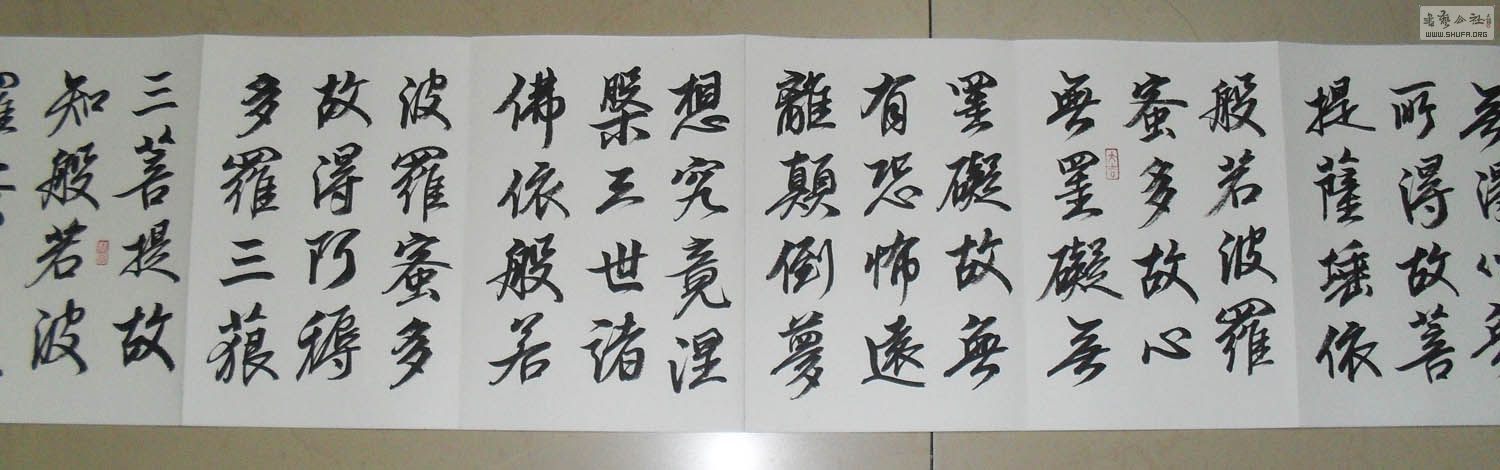 無得以無
所得故菩
提薩埵依
般若波羅
蜜多故心
無罣礙無
罣礙故無
有恐怖遠
離顛倒夢
想究竟涅
槃三世諸
佛依般若
波羅蜜多
故得阿耨
多羅三藐
三菩提故
知般若波
羅
書藝公社
WWW.SHUFA.ORG